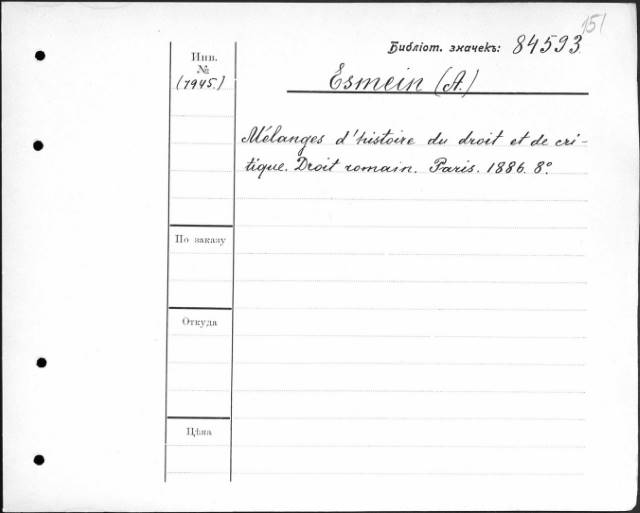 151
Библіот. значекъ: 84593
Инв.
№
(1945.)
Esmein (A.)
Mélanges d'histoire du droit et de cri-
tique. Droit romain. Paris. 1886. 8º.
По заказу
Откуда
Цѣна